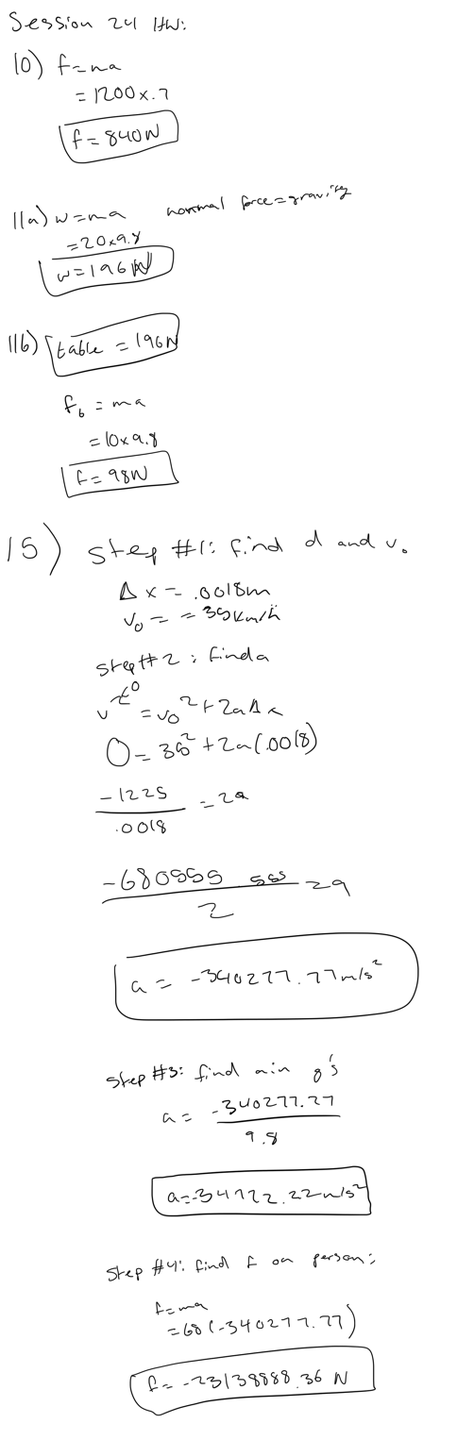 Session 24 HW:
10) f=ma
= 1200x.7
f= 840N
11a) w=ma normal force=gravity
=20x9.8
w=196N
11b) table = 196N
f6 = ma
= 10x9.8
f=98N
15) step #1: find d and v0
Δx = .0018m
v0 = = 35km/h
step #2: find a
v² = v0² + 2aΔx
0
0 = 35² + 2a(.0018)
-1225 / .0018 = 2a
-680555.555 / 2 = a
a = -340277.77m/s²
step #3: find a in g's
a = -340277.77 / 9.8
a=-34722.22m/s²
step #4: find f on person:
f=ma
=68(-340277.77)
f= -23138888.36 N